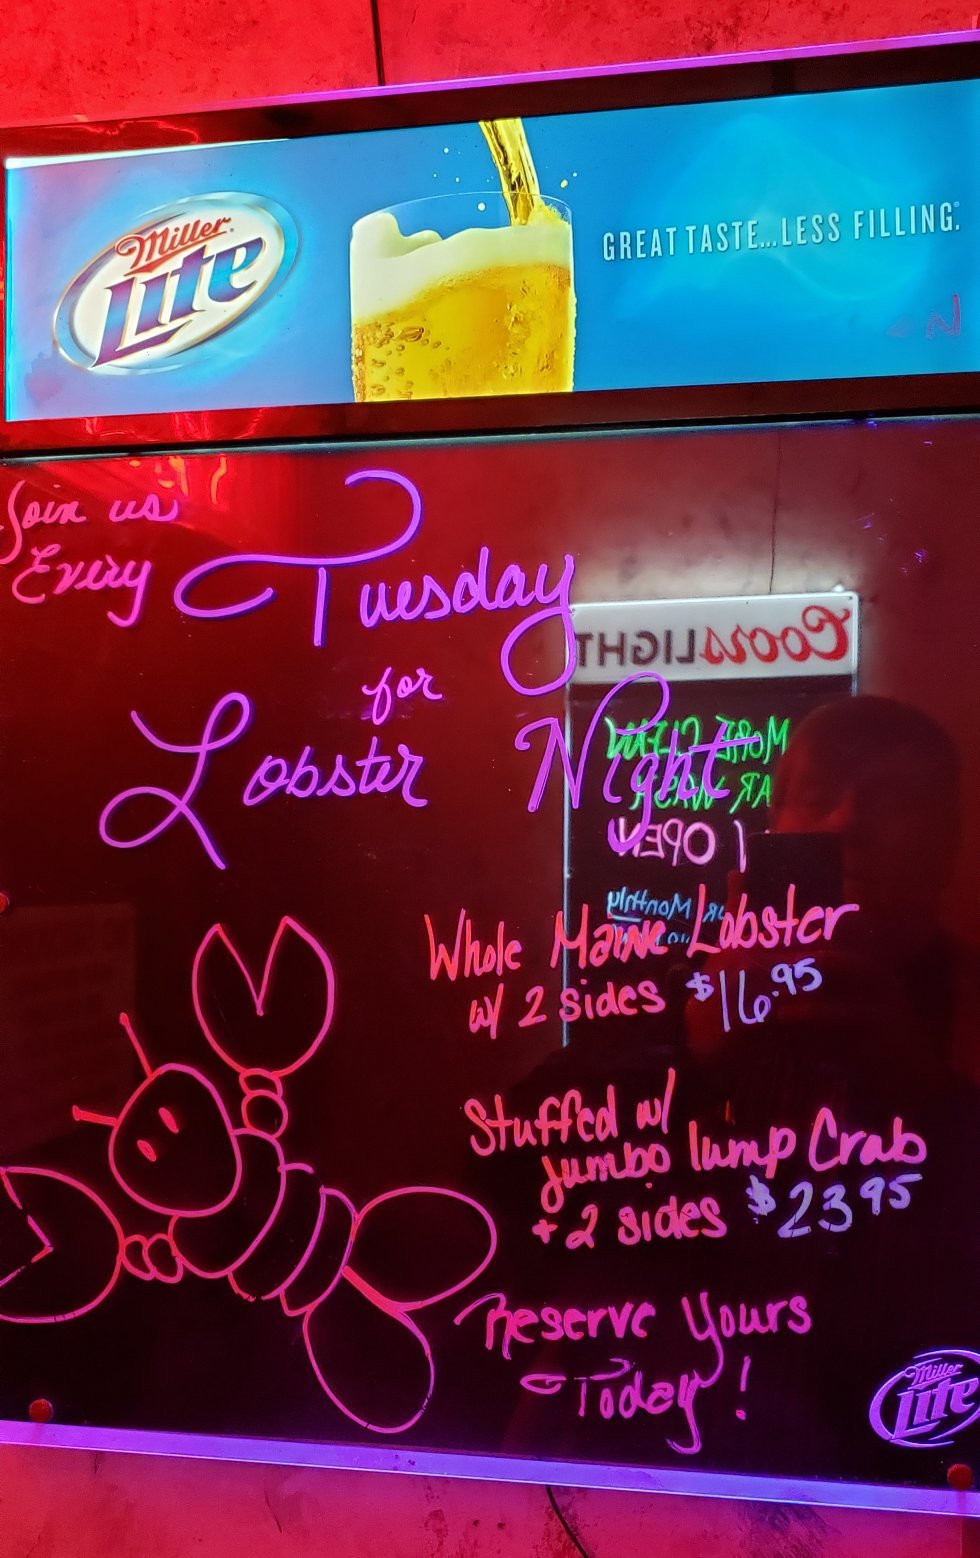 Miller
Lite
GREAT TASTE...LESS FILLING.®
Join us
Every Tuesday
for
Lobster Night
CoorsLIGHT
MORE CLEAN
OPEN
Monthly
Whole Maine Lobster
w/ 2 sides $16.95
Stuffed w/
jumbo lump Crab
+ 2 sides $23.95
Reserve Yours
Today!
Miller
Lite